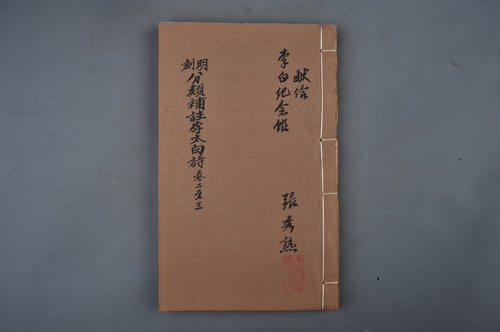 献给
李白纪念館
張秀熟
明刻
分類補註李太白詩卷二至三